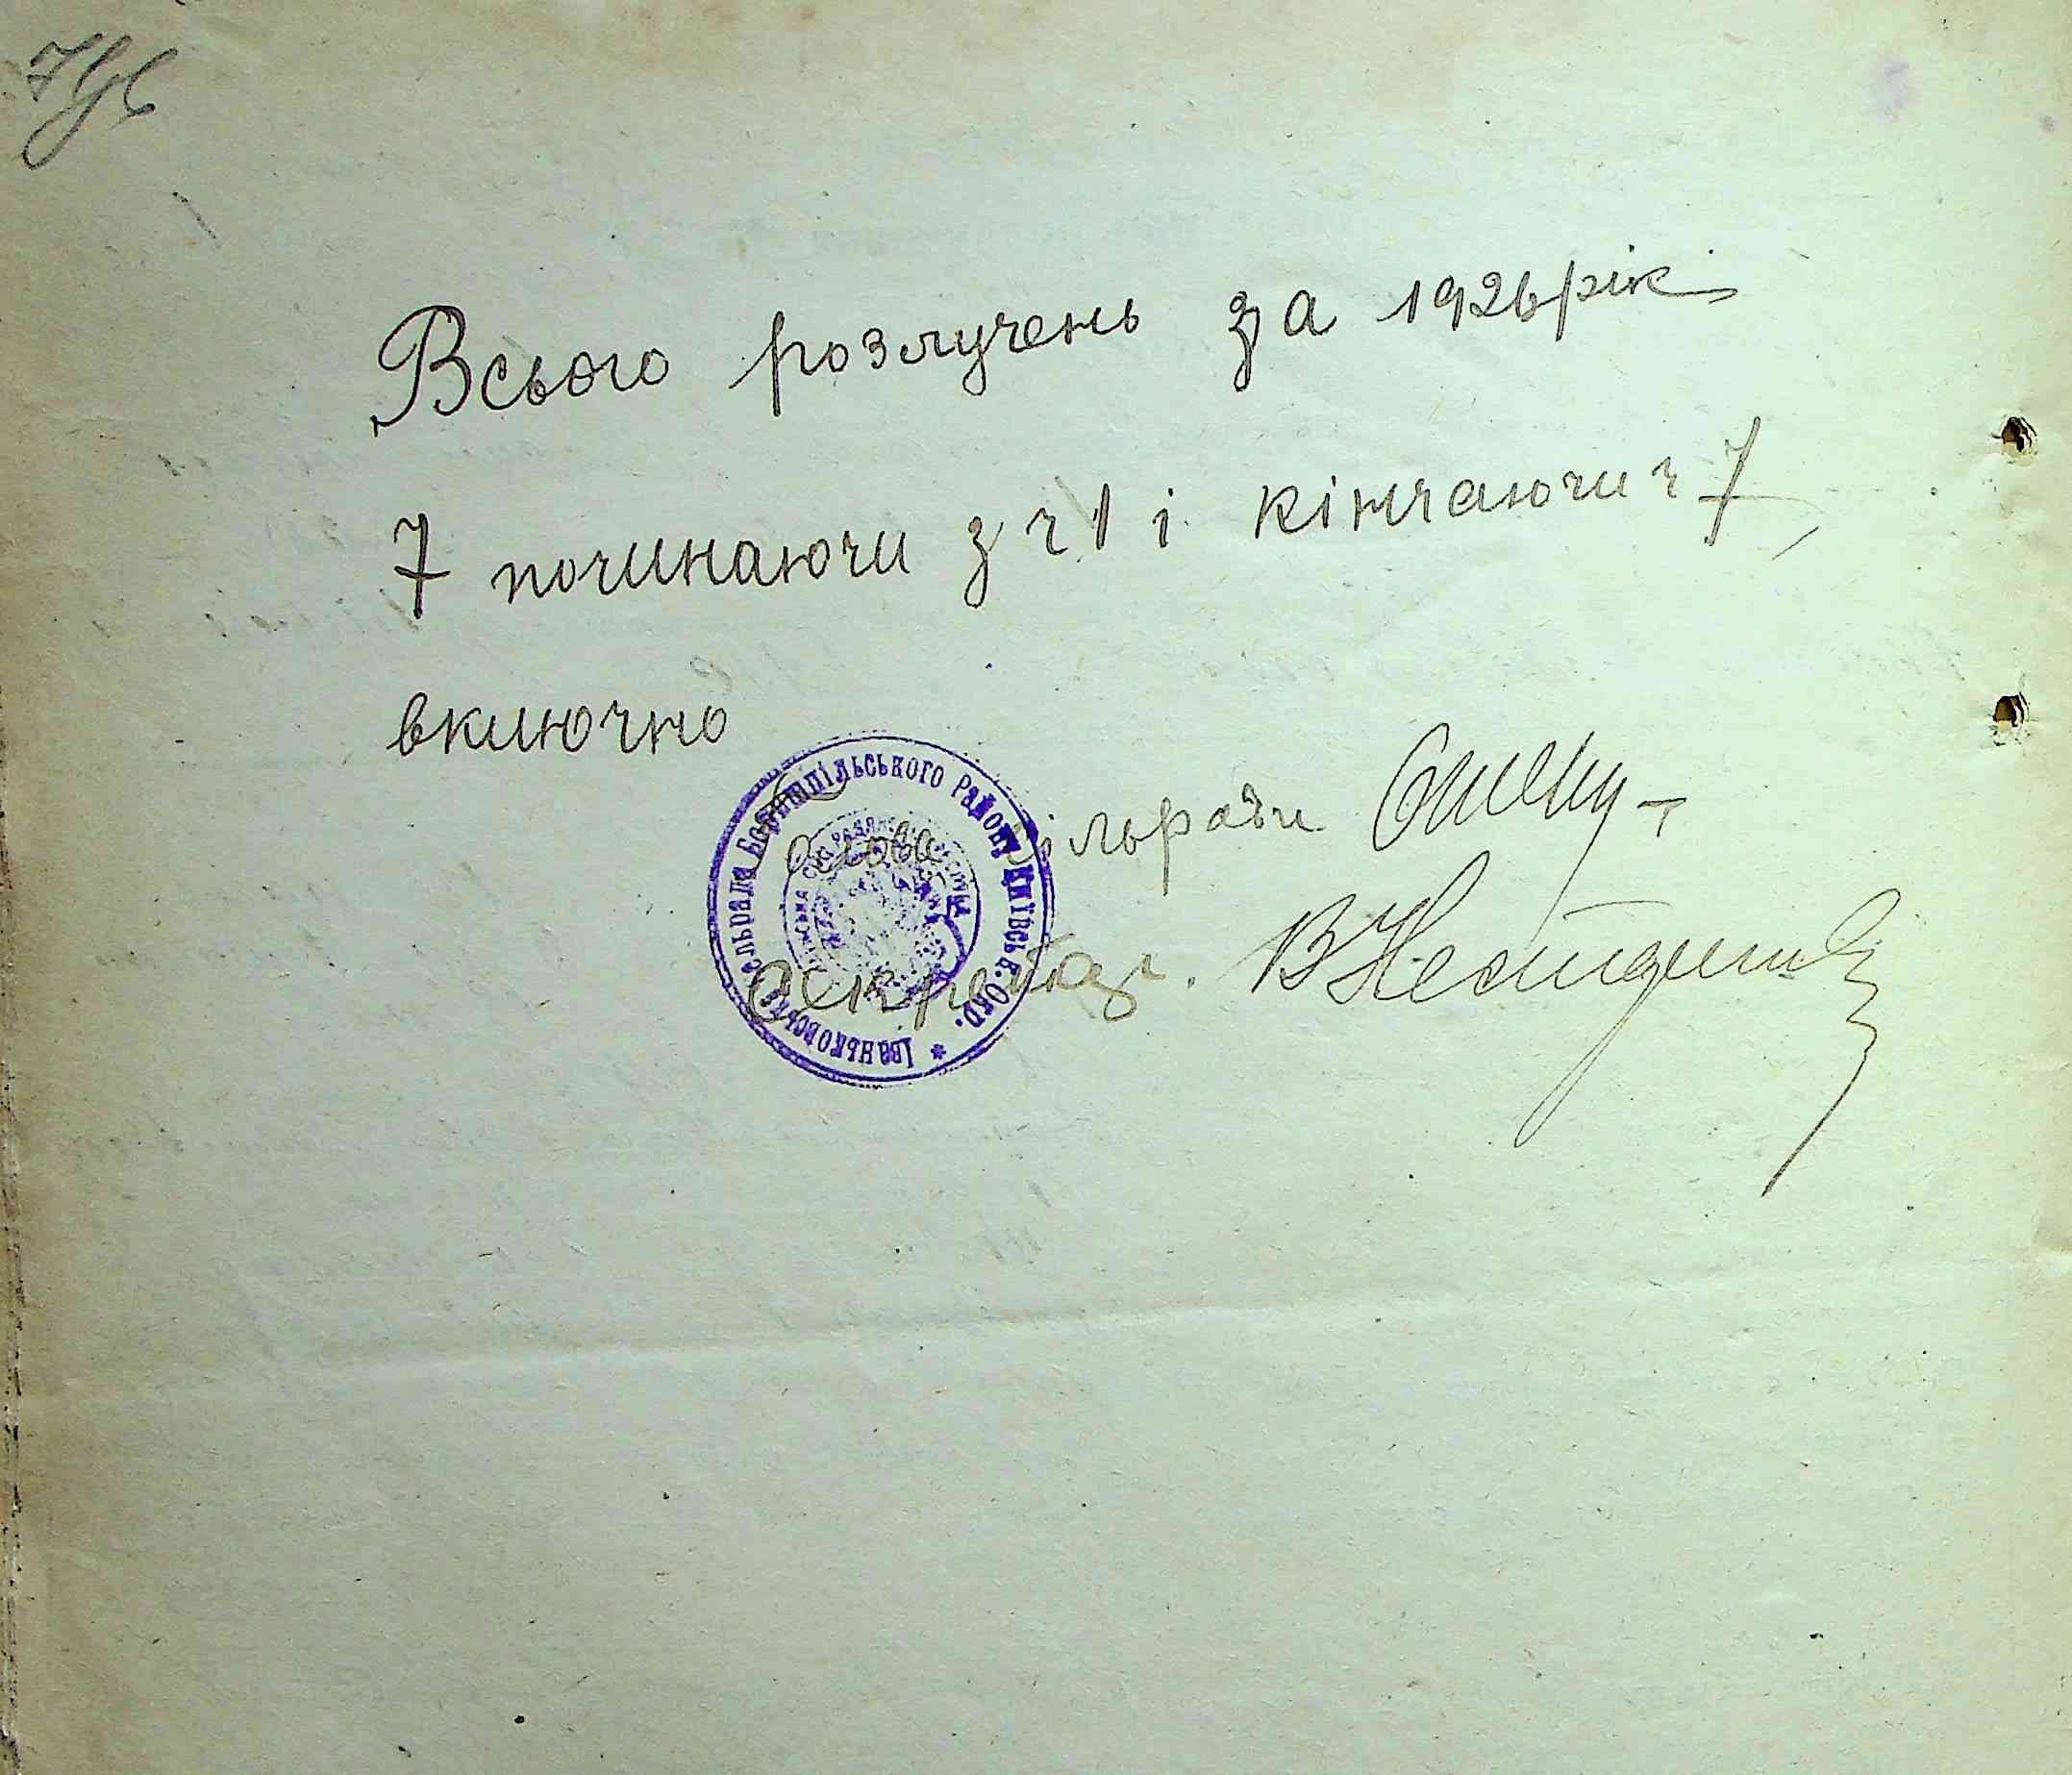 Всього розлучень за 1926 рік
7 починаючи з ч 1 і кінчаючи ч 7
включно
Голова сільради
Секретар.
Іваньковська сільрада Бориспільського району Київськ. Окр. *